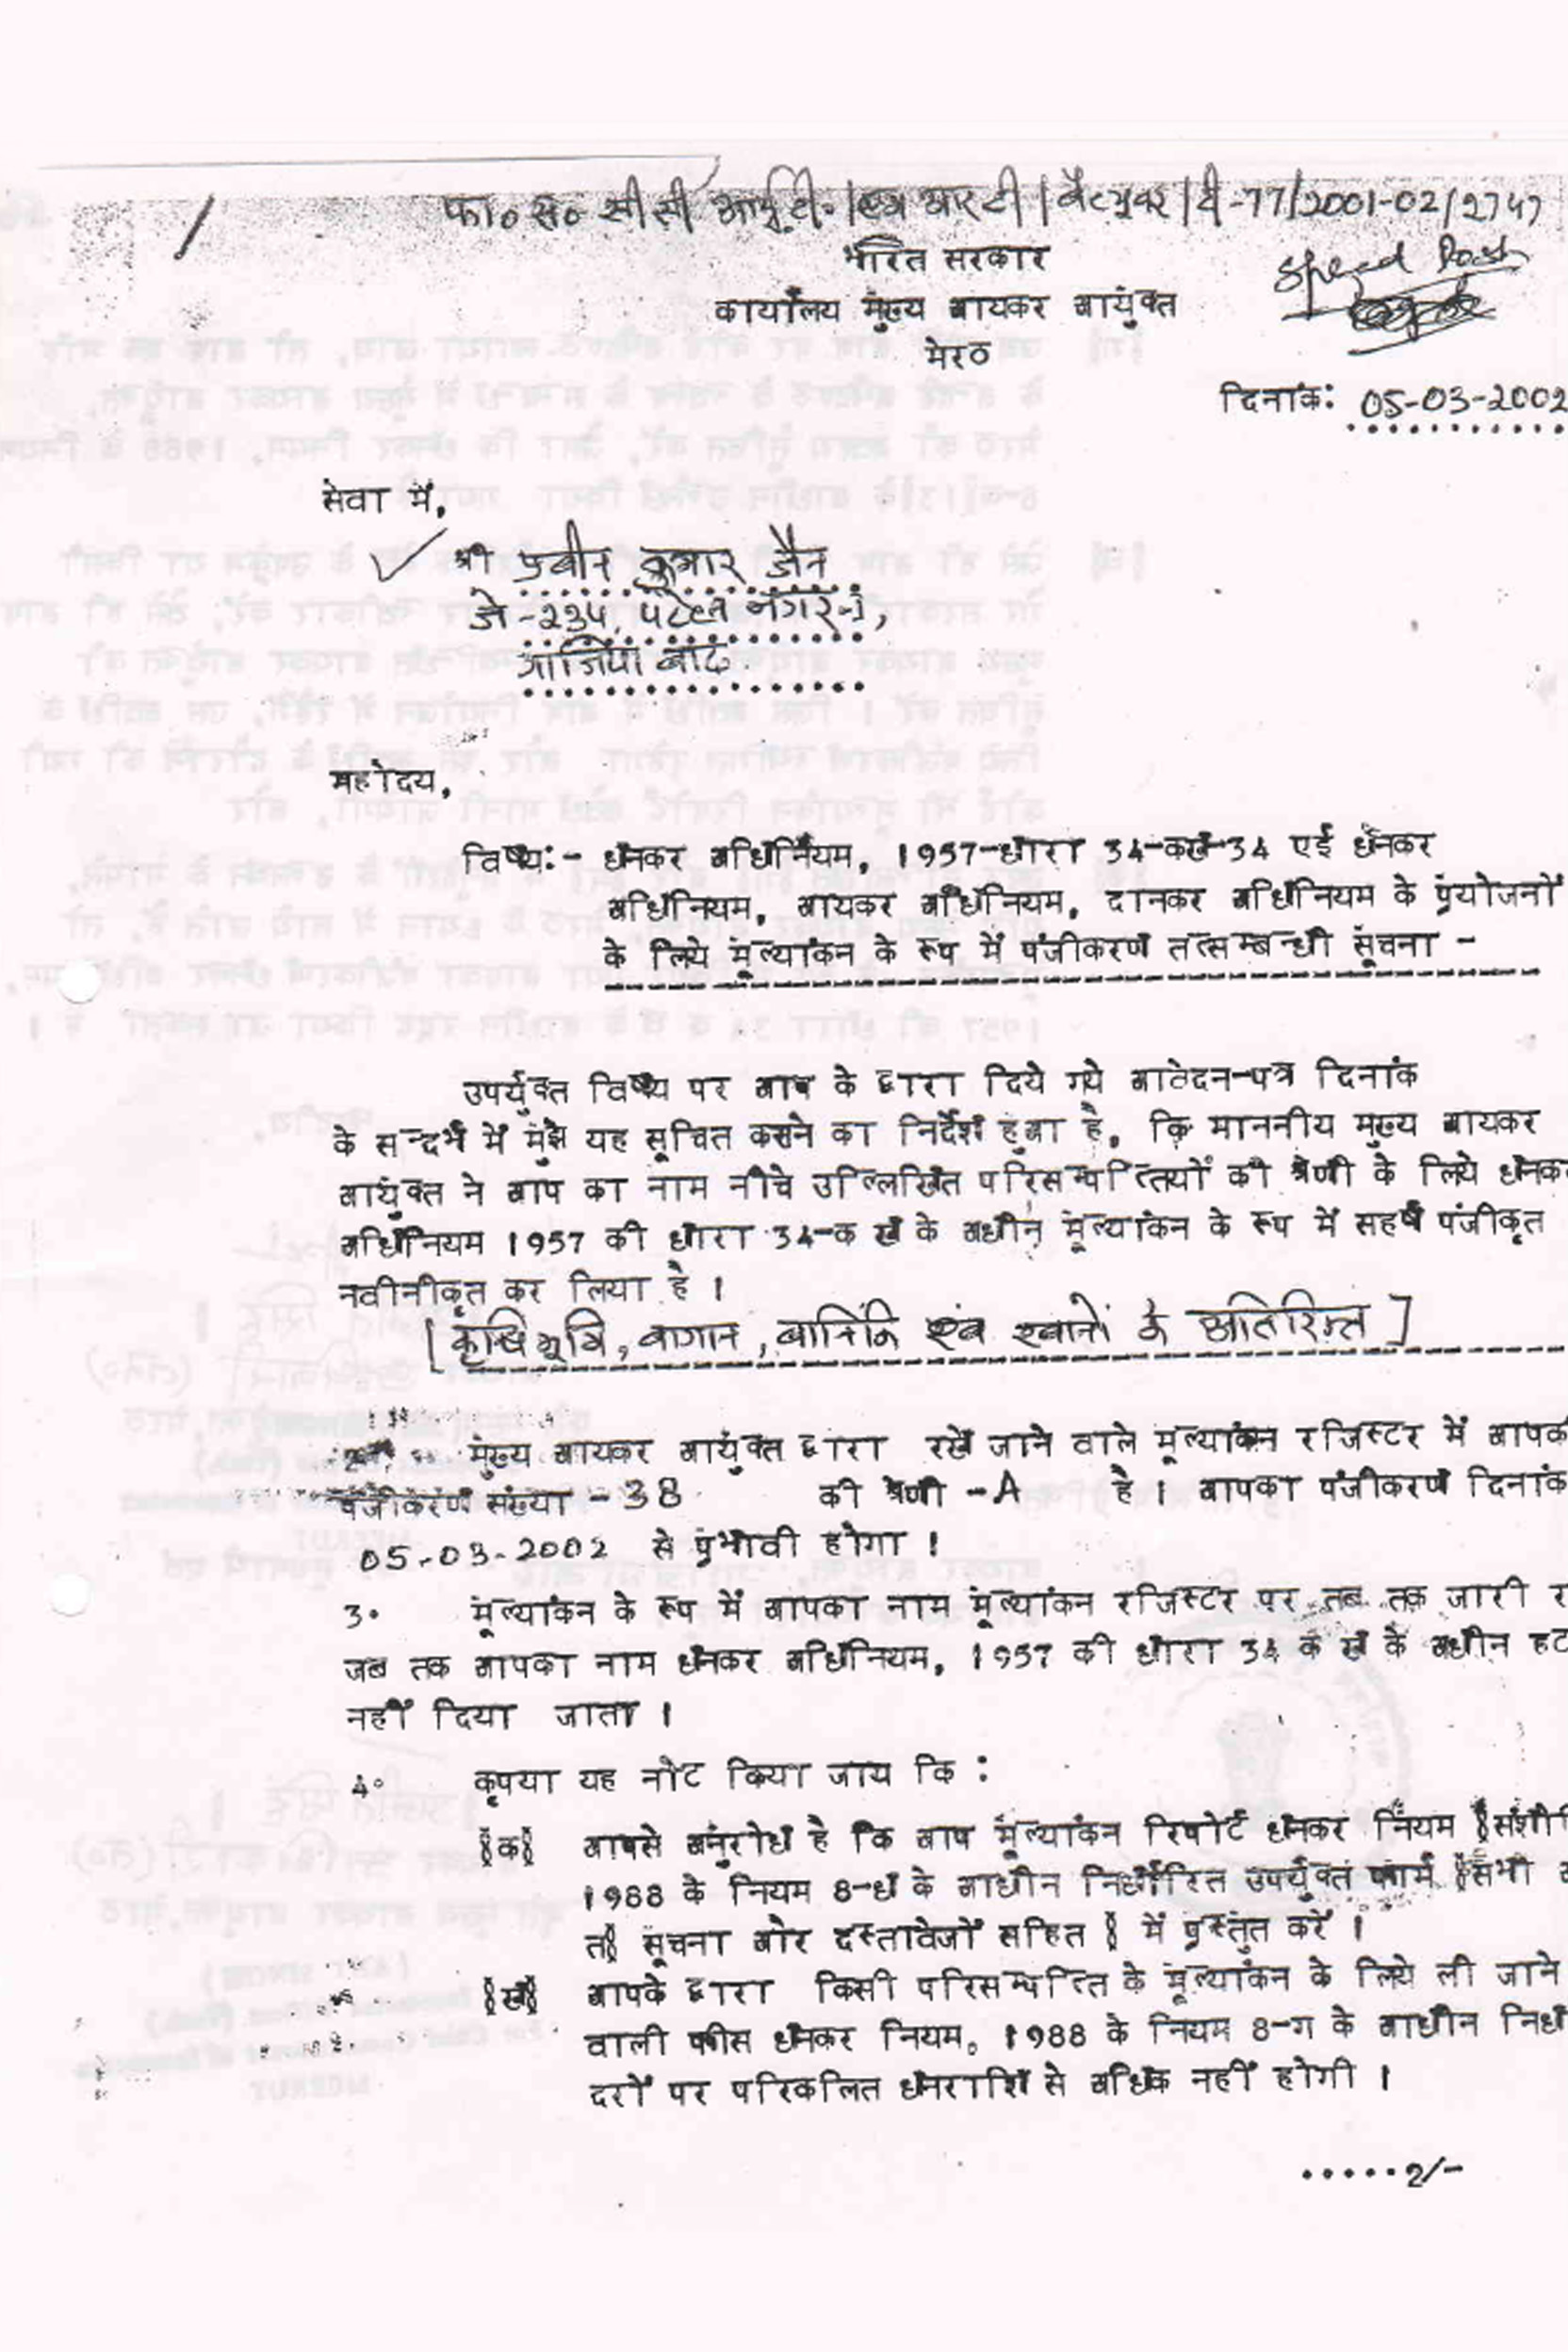 फा० सं० सी सी आई.टी. |एम आर टी | वैल्यूअर | टी -77/2001-02/2747
भारत सरकार
Speed Post
कार्यालय मुख्य आयकर आयुक्त
मेरठ
दिनांक: 05-03-2002
सेवा में,
श्री प्रवीन कुमार जैन
जे-234, पटेल नगर-I,
गाजियाबाद
महोदय,
विषय:- धनकर अधिनियम, 1957-धारा 34-कख-34 एई धनकर
अधिनियम, आयकर अधिनियम, दानकर अधिनियम के प्रयोजनों
के लिये मूल्यांकन के रूप में पंजीकरण तत्सम्बन्धी सूचना -
उपर्युक्त विषय पर आप के द्वारा दिये गये आवेदन-पत्र दिनांक
के सन्दर्भ में मुझे यह सूचित करने का निर्देश हुआ है, कि माननीय मुख्य आयकर
आयुक्त ने आप का नाम नीचे उल्लिखित परिसम्पत्तियों की श्रेणी के लिये धनकर
अधिनियम 1957 की धारा 34-क ख के अधीन मूल्यांकन के रूप में सहर्ष पंजीकृत
नवीनीकृत कर लिया है ।
[कृषि भूमि, बागान, वानिकी एवं खानों के अतिरिक्त]
2. मुख्य आयकर आयुक्त द्वारा रखे जाने वाले मूल्यांकन रजिस्टर में आपक
पंजीकरण संख्या - 38 की श्रेणी - A है । आपका पंजीकरण दिनांक
05-03-2002 से प्रभावी होगा ।
3० मूल्यांकन के रूप में आपका नाम मूल्यांकन रजिस्टर पर तब तक जारी र
जब तक आपका नाम धनकर अधिनियम, 1957 की धारा 34 क ख के अधीन हट
नहीं दिया जाता ।
4० कृपया यह नोट किया जाय कि :
§क§ आपसे अनुरोध है कि आप मूल्यांकन रिपोर्ट धनकर नियम §संशो
1988 के नियम 8-घ के आधीन निर्धारित उपर्युक्त फार्म §सभी
त§ सूचना और दस्तावेजों सहित § में प्रस्तुत करें ।
§ख§ आपके द्वारा किसी परिसम्पत्ति के मूल्यांकन के लिये ली जाने
वाली फीस धनकर नियम, 1988 के नियम 8-ग के आधीन निर्धा
दरों पर परिकलित धनराशि से अधिक नहीं होगी ।
.....2/-